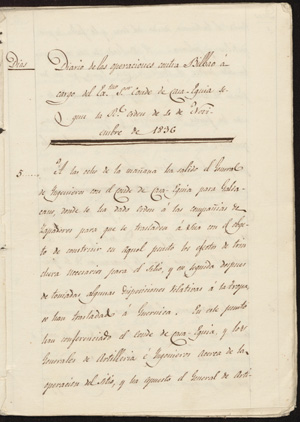 Dias
Diario de las operaciones contra Bilbao à
cargo del Ex.mo S.or Conde de Casa-Eguia Sè-
gun su R.l orden de 4 de
cubre de 1836
5.... A las ocho de la mañana ha salido el General
de Ingenieros con el Conde de Casa-Eguia para Galda-
cano, donde se ha dado orden à las compañias de
Zapadores para que se trasladen à con el obje-
to de construir en aquel punto los efectos de trin-
chera necesarios para el sitio, y en seguida despues
de tomadas algunas disposiciones relativas à la tropa,
se han trasladado à Guernica. En este punto
han conferenciado el Conde de Casa-Eguia, y los
Generales de Artilleria è Ingenieros acerca de la
operacion del sitio, y ha opuesto el General de Arti-